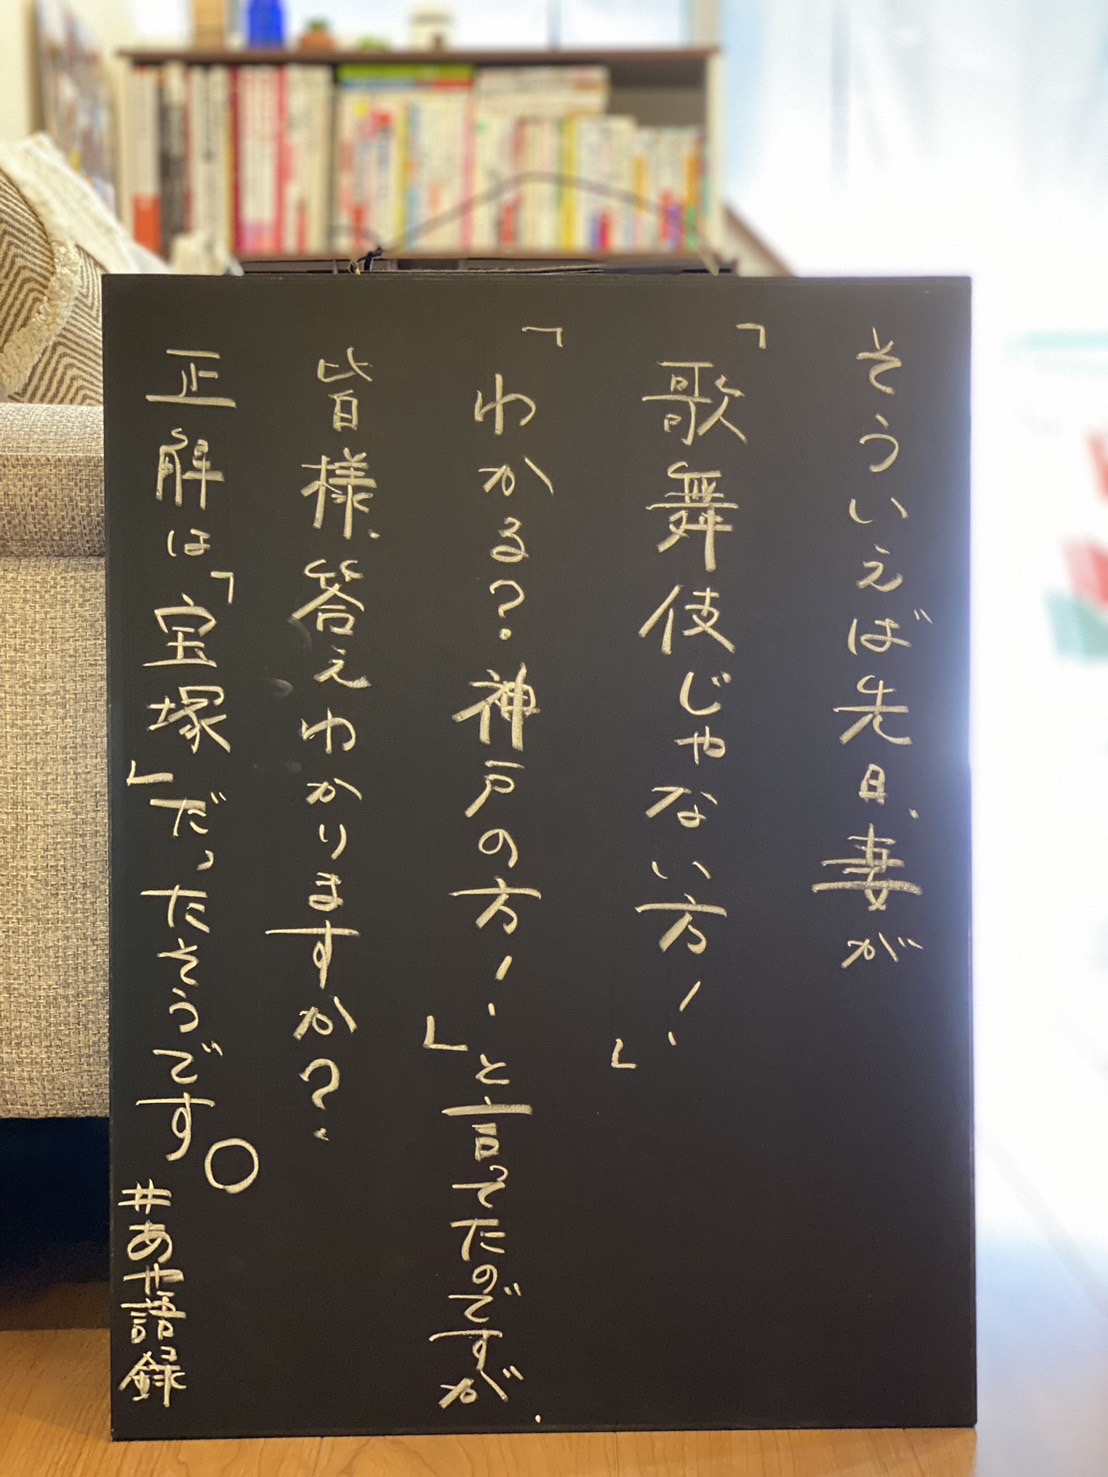 そういえば先日、妻が
「歌舞伎じゃない方！」
「わかる？神戸の方！」と言ってたのですが
皆様、答えわかりますか？
正解は「宝塚」だったそうです。
#あや語録